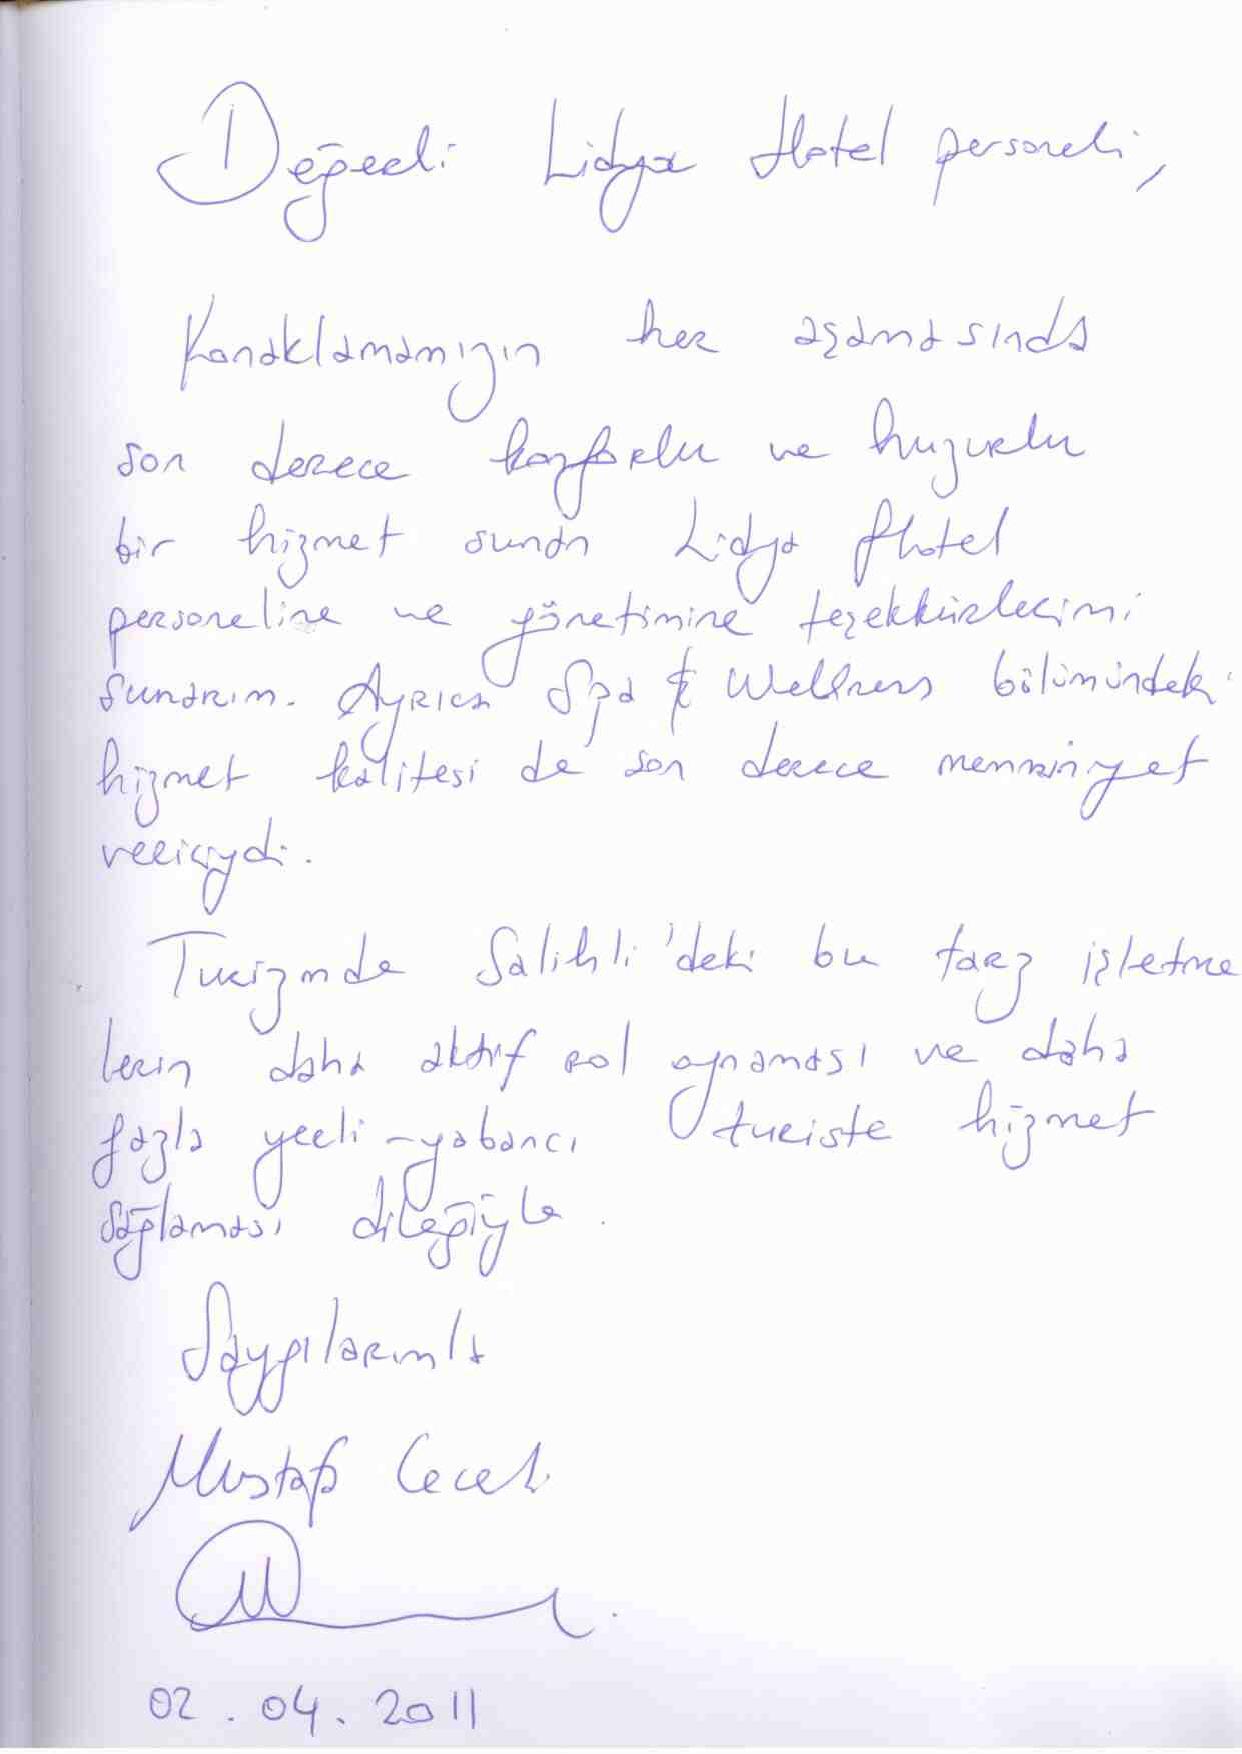 Değerli Lidya Hotel personeli,
Konaklamamızın her aşamasında
son derece konforlu ve huzurlu
bir hizmet sunan Lidya Hotel
personeline ve yönetimine teşekkürlerimi
sunarım. Ayrıca Spa & Wellness bölümündeki
hizmet kalitesi de son derece memnuniyet
vericiydi.
Turizmde Salihli'deki bu tarz işletme
lerin daha aktif rol oynaması ve daha
fazla yerli-yabancı turiste hizmet
sağlaması dileğiyle.
Saygılarımla
Mustafa Ceceli
02.04.2011